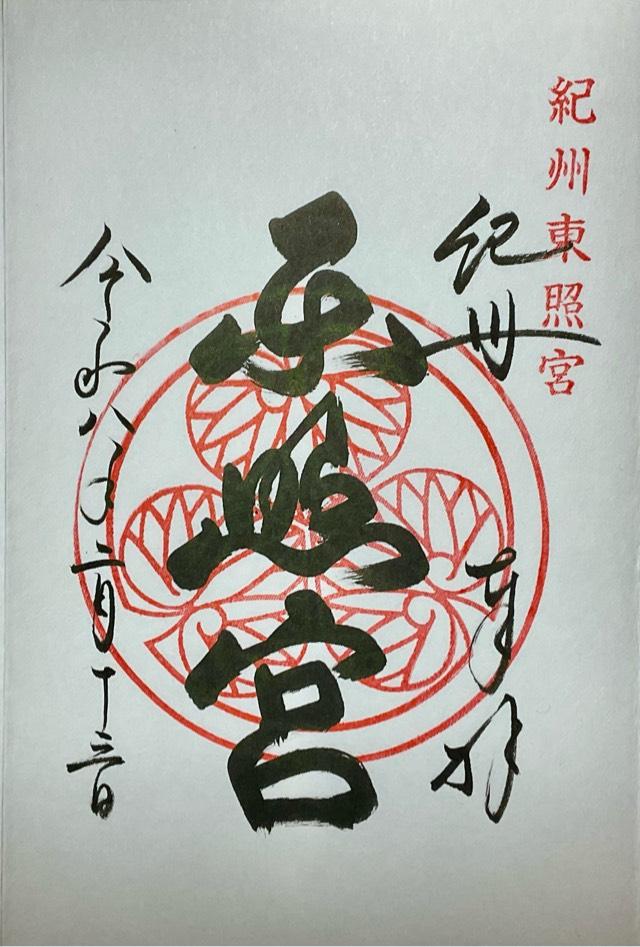 紀州東照宮
紀州
奉拝
東照宮
令和八年二月十三日